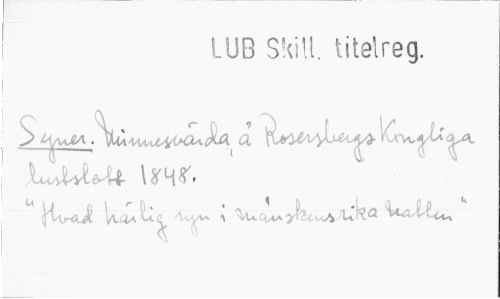 LUB Skill. titelreg.
Syner. Minnesvärda, å Rosersbergs Kongliga
lustslott 1848.
"Hvad härlig syn i månskensrika natten"